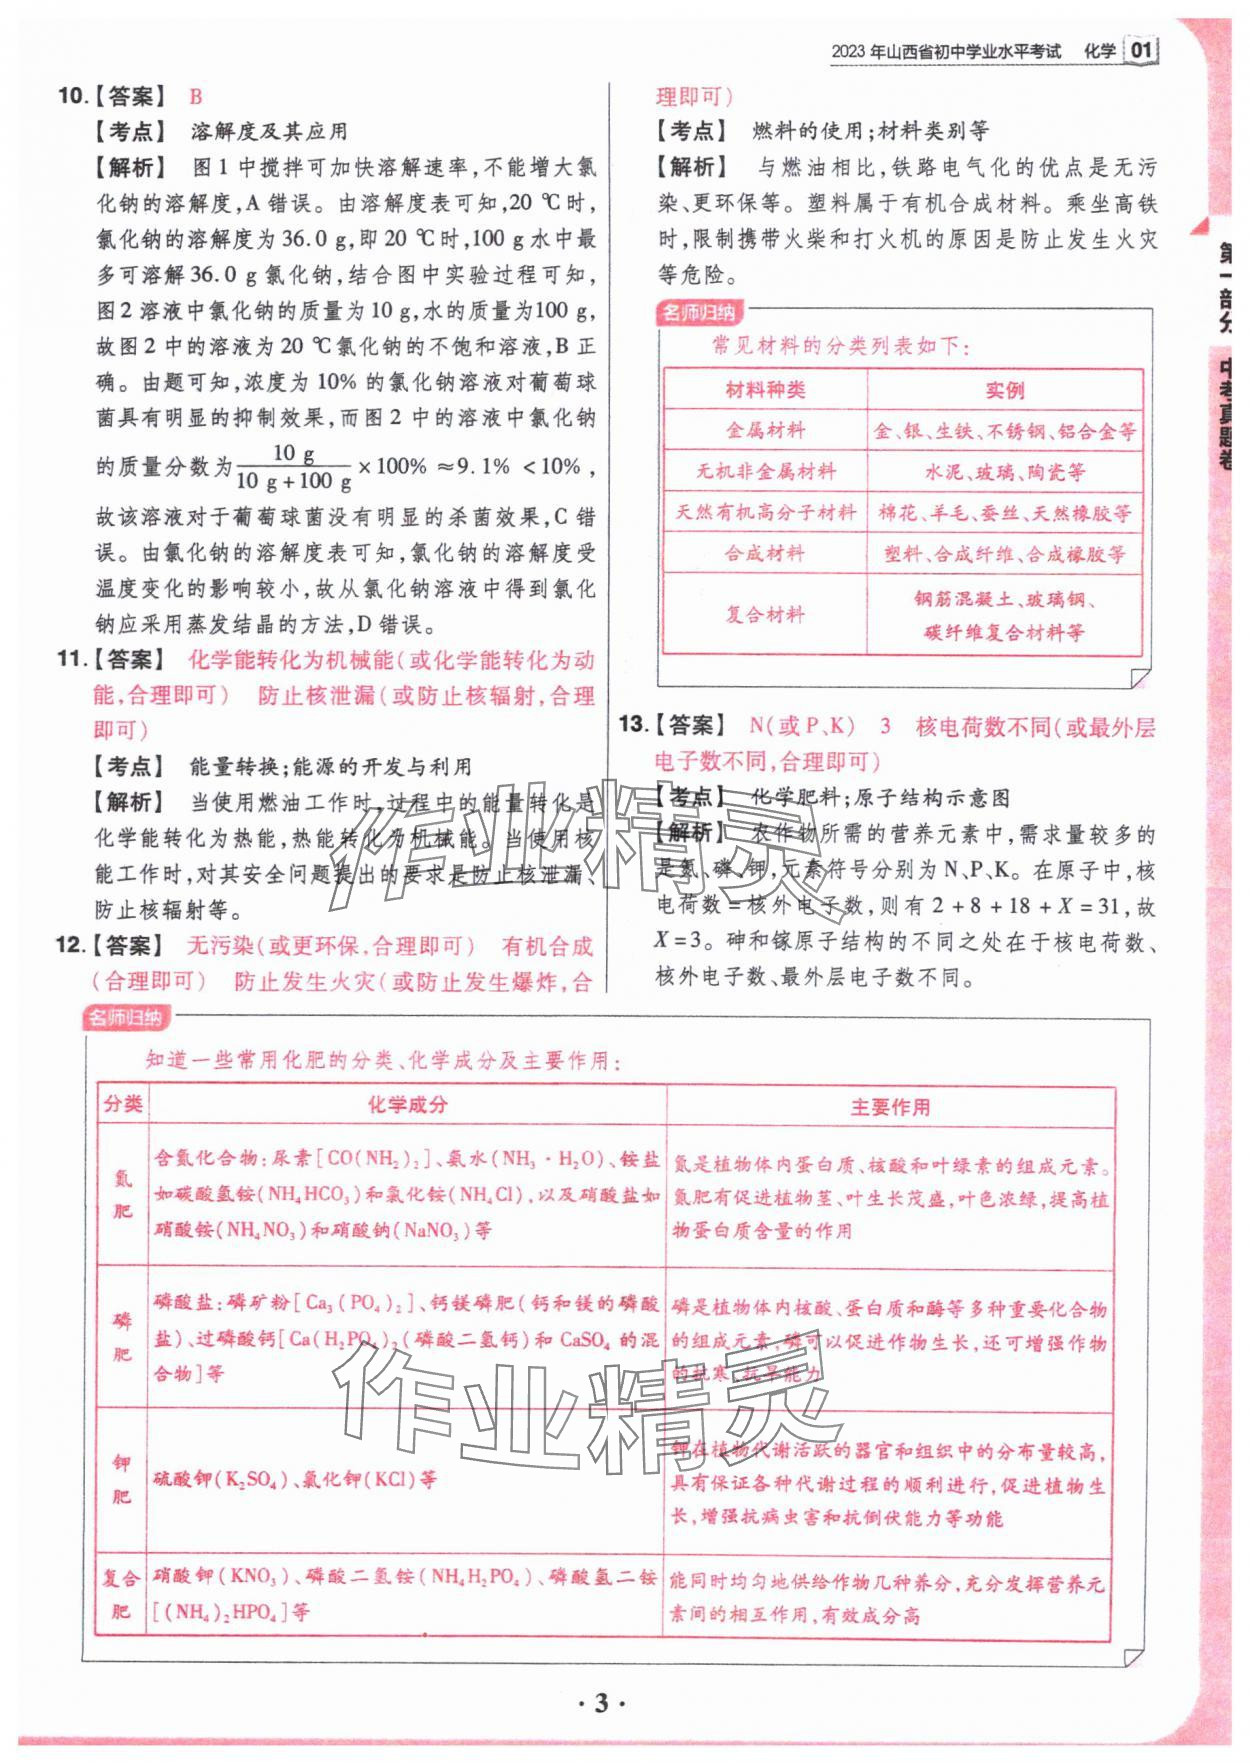 2023 年山西省初中学业水平考试 化学 01
10.【答案】 B
【考点】 溶解度及其应用
【解析】 图 1 中搅拌可加快溶解速率,不能增大氯
化钠的溶解度,A 错误。由溶解度表可知,20 ℃时,
氯化钠的溶解度为 36.0 g,即 20 ℃时,100 g 水中最
多可溶解36.0 g氯化钠,结合图中实验过程可知,
图2溶液中氯化钠的质量为10 g,水的质量为100 g,
故图 2 中的溶液为 20 ℃氯化钠的不饱和溶液,B 正
确。由题可知,浓度为 10% 的氯化钠溶液对葡萄球
菌具有明显的抑制效果,而图 2 中的溶液中氯化钠
的质量分数为 10 g/(10 g+100 g) ×100% ≈9.1% <10% ,
故该溶液对于葡萄球菌没有明显的杀菌效果,C 错
误。由氯化钠的溶解度表可知,氯化钠的溶解度受
温度变化的影响较小,故从氯化钠溶液中得到氯化
钠应采用蒸发结晶的方法,D 错误。
11.【答案】 化学能转化为机械能(或化学能转化为动
能,合理即可) 防止核泄漏(或防止核辐射,合理
即可)
【考点】 能量转换;能源的开发与利用
【解析】 当使用燃油工作时,过程中的能量转化是
化学能转化为热能,热能转化为机械能。当使用核
能工作时,对其安全问题提出的要求是防止核泄漏、
防止核辐射等。
12.【答案】 无污染(或更环保,合理即可) 有机合成
(合理即可) 防止发生火灾(或防止发生爆炸,合
理即可)
【考点】 燃料的使用;材料类别等
【解析】 与燃油相比,铁路电气化的优点是无污
染、更环保等。塑料属于有机合成材料。乘坐高铁
时,限制携带火柴和打火机的原因是防止发生火灾
等危险。
名师归纳
常见材料的分类列表如下:
材料种类 实例
金属材料 金、银、生铁、不锈钢、铝合金等
无机非金属材料 水泥、玻璃、陶瓷等
天然有机高分子材料 棉花、羊毛、蚕丝、天然橡胶等
合成材料 塑料、合成纤维、合成橡胶等
复合材料 钢筋混凝土、玻璃钢、
碳纤维复合材料等
13.【答案】 N(或 P、K) 3 核电荷数不同(或最外层
电子数不同,合理即可)
【考点】 化学肥料;原子结构示意图
【解析】 农作物所需的营养元素中,需求量较多的
是氮、磷、钾,元素符号分别为 N、P、K。在原子中,核
电荷数=核外电子数,则有 2+8+18+X=31,故
X=3。砷和镓原子结构的不同之处在于核电荷数、
核外电子数、最外层电子数不同。
名师归纳
知道一些常用化肥的分类、化学成分及主要作用:
分类 化学成分 主要作用
氮肥
含氮化合物:尿素[CO(NH₂)₂]、氨水(NH₃·H₂O)、铵盐
如碳酸氢铵(NH₄HCO₃)和氯化铵(NH₄Cl),以及硝酸盐如
硝酸铵(NH₄NO₃)和硝酸钠(NaNO₃)等
氮是植物体内蛋白质、核酸和叶绿素的组成元素。
氮肥有促进植物茎、叶生长茂盛,叶色浓绿,提高植
物蛋白质含量的作用
磷肥
磷酸盐:磷矿粉[Ca₃(PO₄)₂]、钙镁磷肥(钙和镁的磷酸
盐)、过磷酸钙[Ca(H₂PO₄)₂(磷酸二氢钙)和 CaSO₄ 的混
合物]等
磷是植物体内核酸、蛋白质和酶等多种重要化合物
的组成元素,磷可以促进作物生长,还可增强作物
的抗寒、抗旱能力
钾肥
硫酸钾(K₂SO₄)、氯化钾(KCl)等
钾在植物代谢活跃的器官和组织中的分布量较高,
具有保证各种代谢过程的顺利进行,促进植物生
长,增强抗病虫害和抗倒伏能力等功能
复合肥
硝酸钾(KNO₃)、磷酸二氢铵(NH₄H₂PO₄)、磷酸氢二铵
[(NH₄)₂HPO₄]等
能同时均匀地供给作物几种养分,充分发挥营养元
素间的相互作用,有效成分高
第一部分 中考真题卷
作业精灵
作业精灵
· 3 ·